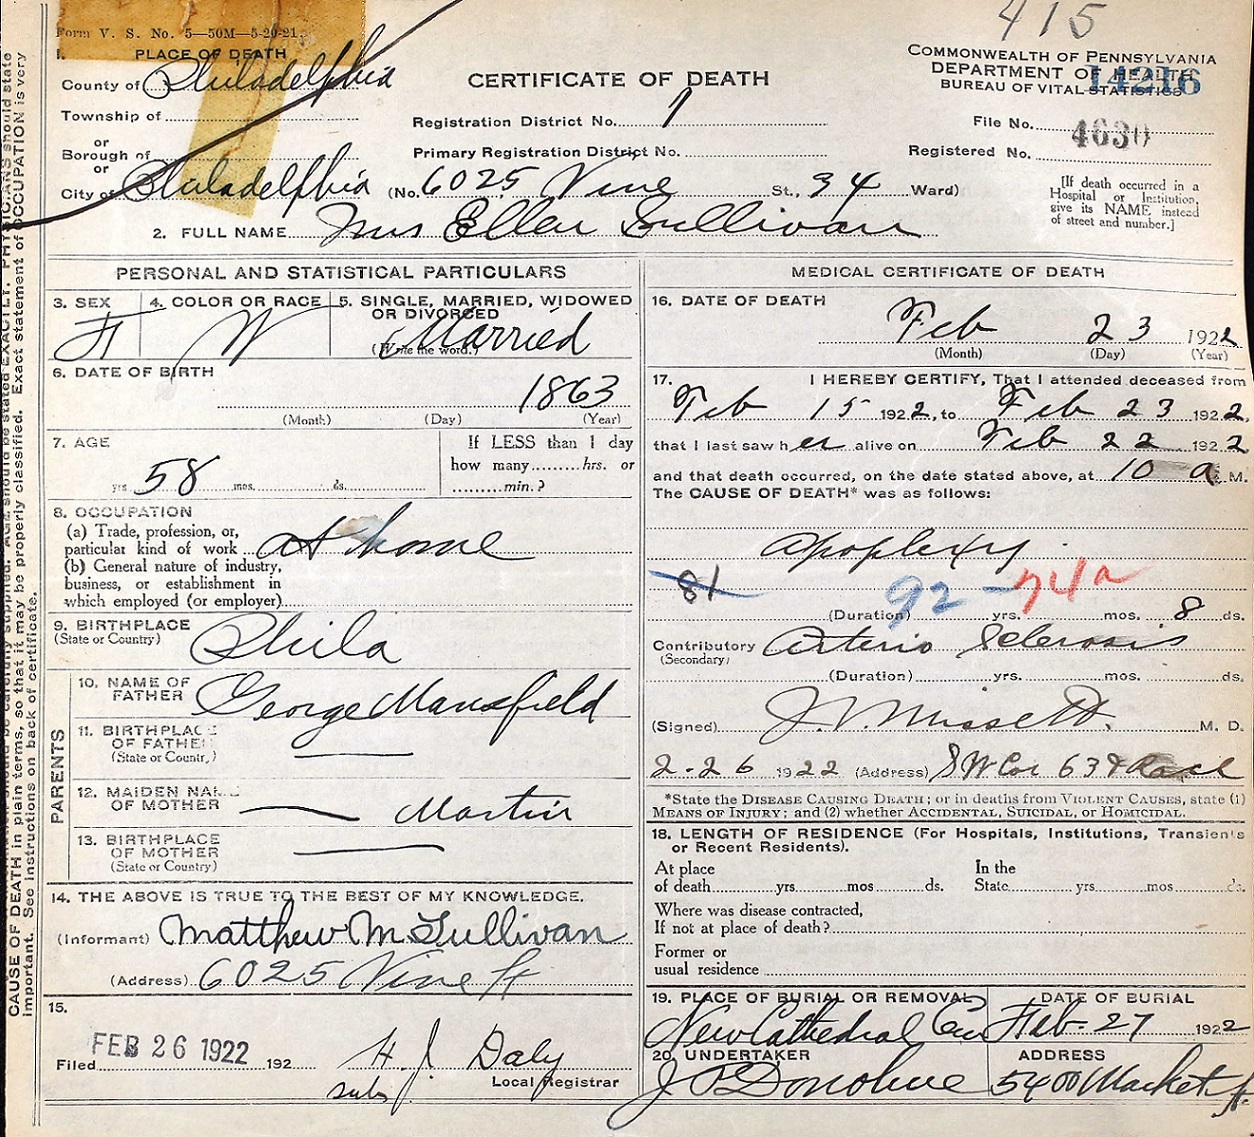 415
Form V. S. No. 5—50M—5-20-21.
1. PLACE OF DEATH
County of Philadelphia
Township of
or
Borough of
or
City of Philadelphia (No. 6025 Vine St., 34 Ward)
CERTIFICATE OF DEATH
Registration District No. 1
Primary Registration District No.
COMMONWEALTH OF PENNSYLVANIA
DEPARTMENT OF HEALTH
BUREAU OF VITAL STATISTICS
14216
File No.
Registered No. 4630
[If death occurred in a
Hospital or Institution,
give its NAME instead
of street and number.]
2. FULL NAME Mrs Ellen Sullivan
PERSONAL AND STATISTICAL PARTICULARS
3. SEX F
4. COLOR OR RACE W
5. SINGLE, MARRIED, WIDOWED
OR DIVORCED
(Write the word.) Married
6. DATE OF BIRTH
1863
(Month) (Day) (Year)
7. AGE
58 yrs. mos. ds.
If LESS than 1 day
how many hrs. or
min.?
8. OCCUPATION
(a) Trade, profession, or,
particular kind of work at home
(b) General nature of industry,
business, or establishment in
which employed (or employer)
9. BIRTHPLACE
(State or Country) Phila
PARENTS
10. NAME OF
FATHER George Mansfield
11. BIRTHPLACE
OF FATHER
(State or Country) —
12. MAIDEN NAME
OF MOTHER — Martin
13. BIRTHPLACE
OF MOTHER
(State or Country) —
14. THE ABOVE IS TRUE TO THE BEST OF MY KNOWLEDGE.
(Informant) Matthew M Sullivan
(Address) 6025 Vine St
15.
Filed FEB 26 1922 192 H. J. Daly
subs Local Registrar
MEDICAL CERTIFICATE OF DEATH
16. DATE OF DEATH
Feb 23 1922
(Month) (Day) (Year)
17. I HEREBY CERTIFY, That I attended deceased from
Feb 15 1922, to Feb 23 1922,
that I last saw her alive on Feb 22 1922
and that death occurred, on the date stated above, at 10 a. M.
The CAUSE OF DEATH* was as follows:
apoplexy
81 92 - 74a
(Duration) yrs. mos. 8 ds.
Contributory Arterio Sclerosis
(Secondary)
(Duration) yrs. mos. ds.
(Signed) M. D.
2-26 1922 (Address) SW Cor 63 & Race
*State the DISEASE CAUSING DEATH; or in deaths from VIOLENT CAUSES, state (1)
MEANS OF INJURY; and (2) whether ACCIDENTAL, SUICIDAL, or HOMICIDAL.
18. LENGTH OF RESIDENCE (For Hospitals, Institutions, Transients
or Recent Residents).
At place
of death yrs mos ds.
In the
State yrs mos ds.
Where was disease contracted,
If not at place of death?
Former or
usual residence
19. PLACE OF BURIAL OR REMOVAL
New Cathedral Cem
DATE OF BURIAL
Feb. 27 1922
20. UNDERTAKER
J P Donohue
ADDRESS
5400 Market St.
CAUSE OF DEATH in plain terms, so that it may be properly classified. Exact statement of OCCUPATION is very
important. See instructions on back of certificate.